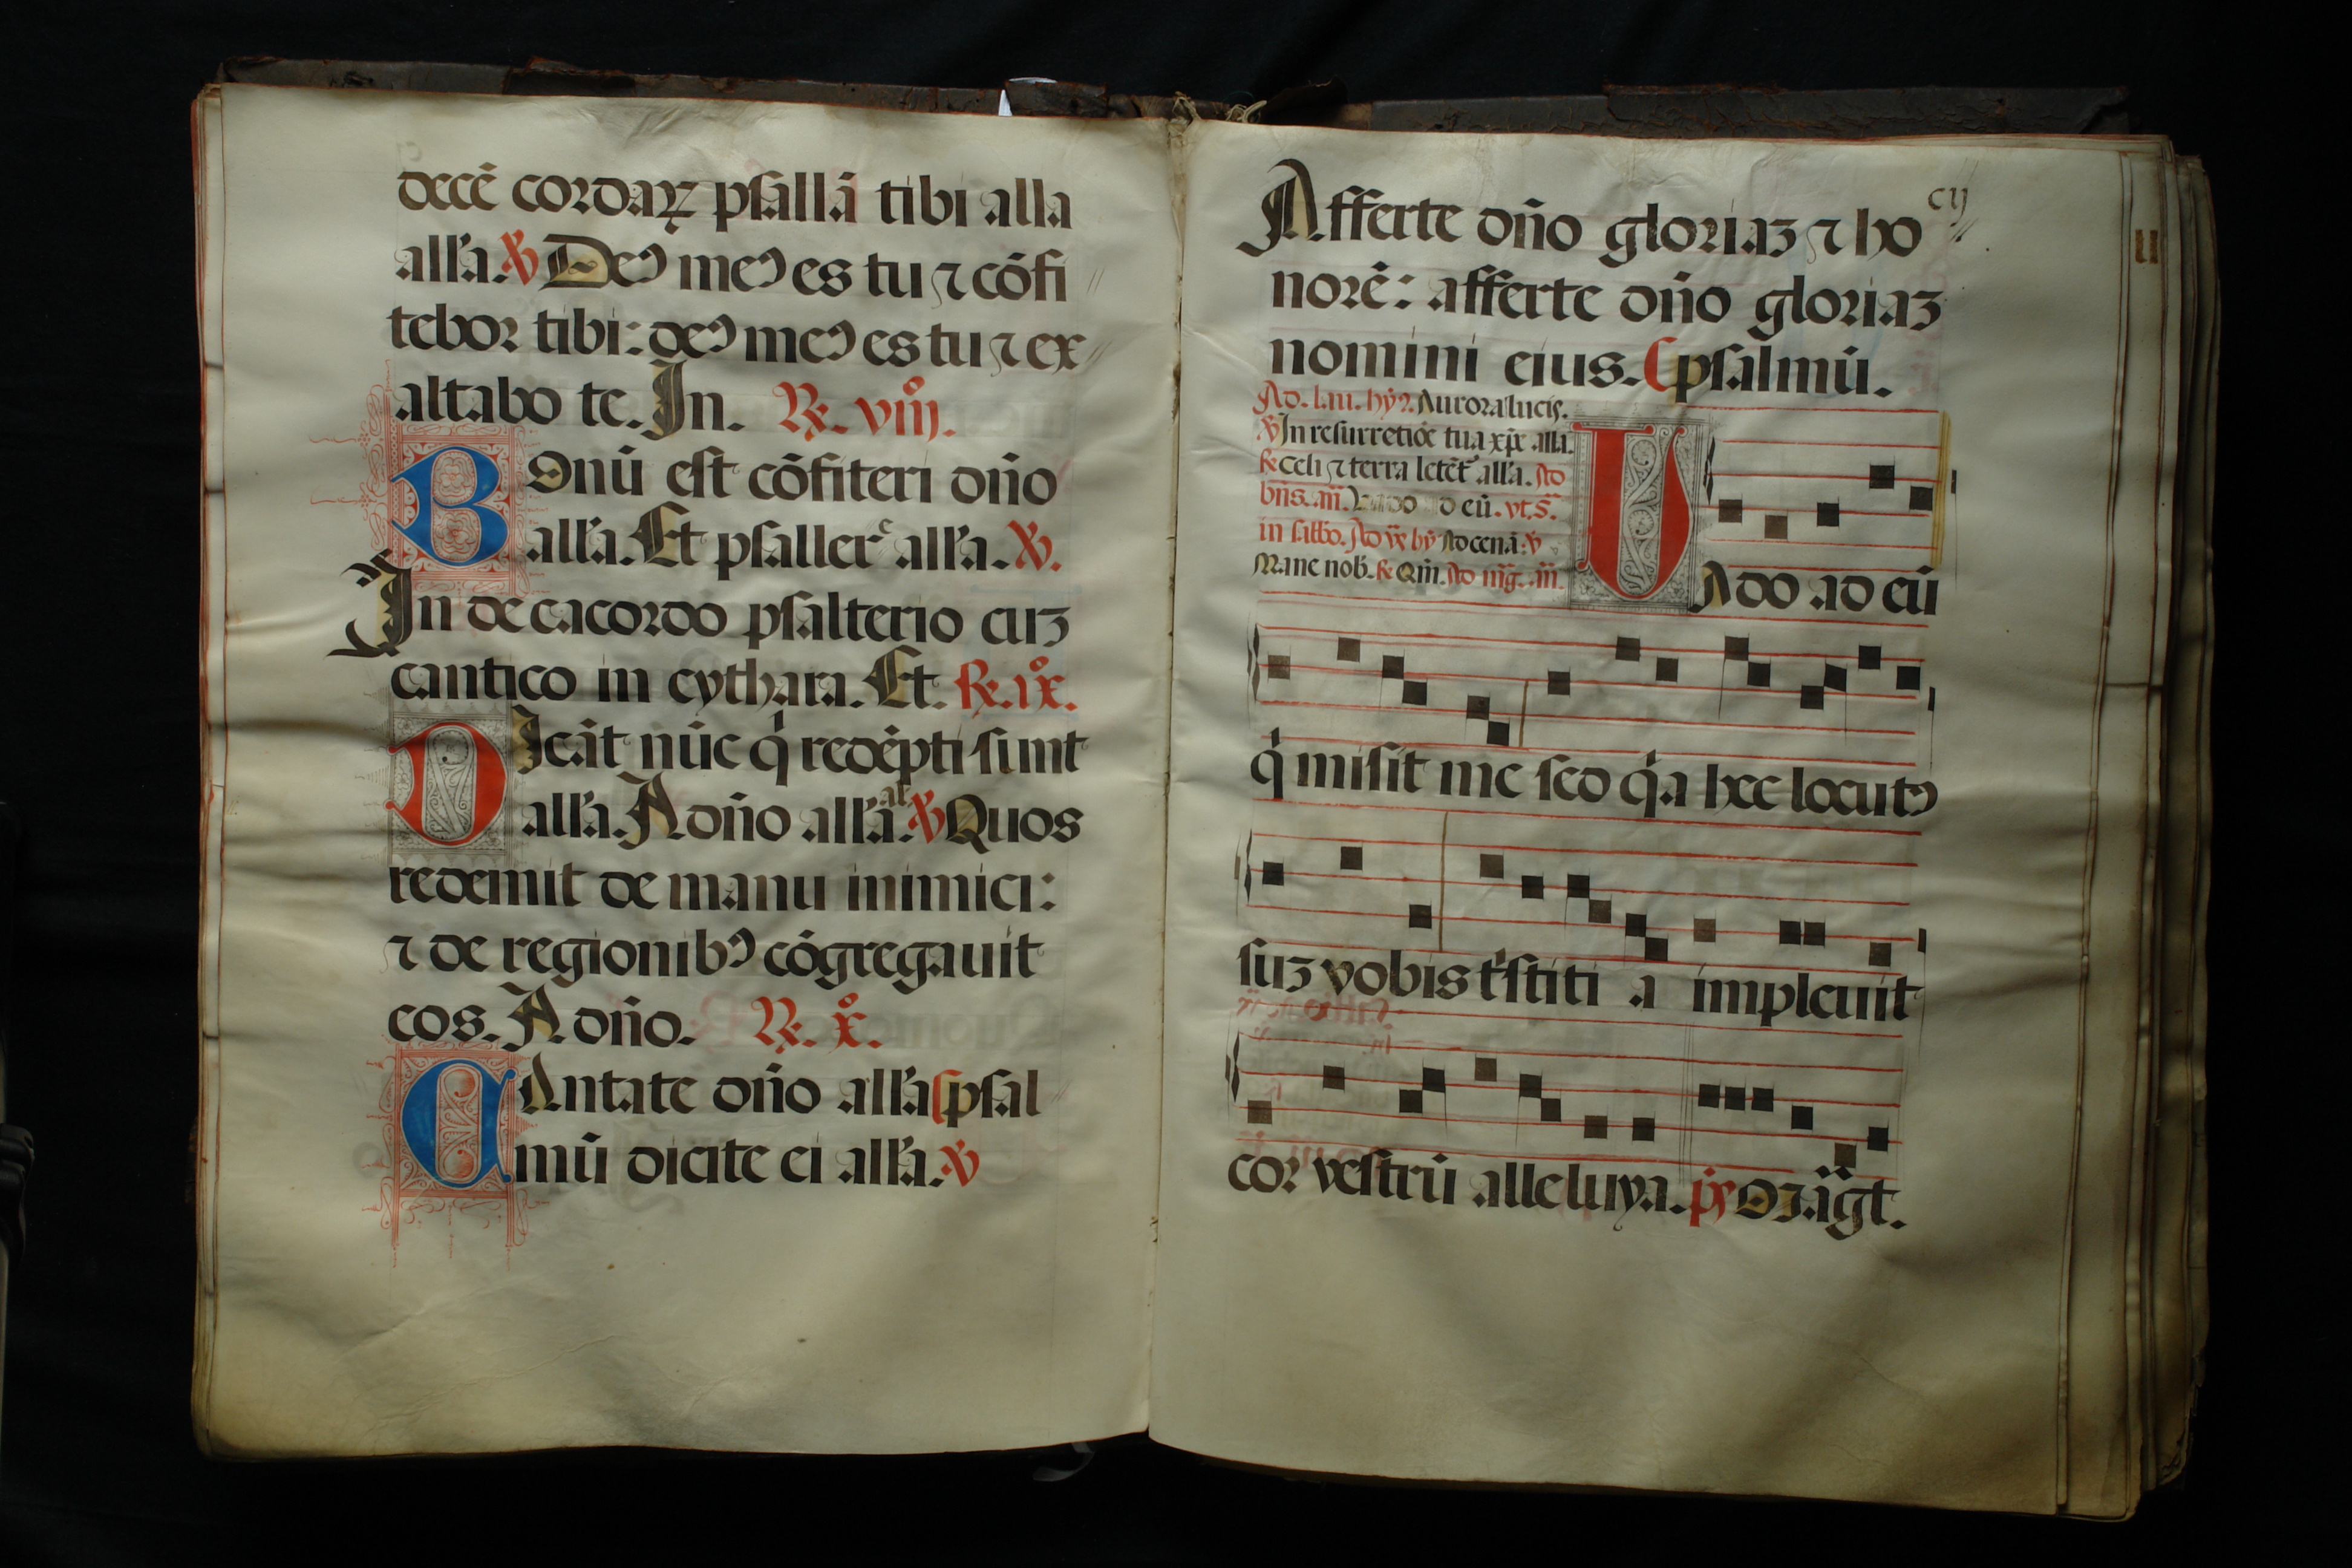 decē cordaꝝ psallā tibi alla
all'a. ℣ Deꝰ meꝰ es tu ⁊ cōfi
tebor tibi: deꝰ meꝰ es tu ⁊ ex
altabo te. In. ℟. viijº.
BOnū est cōfiteri dño
all'a. Et psallere all'a. ℣.
In decacordo psalterio cuʒ
cantico in cythara. Et. ℟. ixº.
DIcāt nūc q̇ redēpti sunt
all'a. A dño all'a. ℣ Quos
redemit de manu inimici:
⁊ de regionibꝰ cōgregauit
eos. A dño. ℟. xº.
CAntate dño all'a psal
mū dicite ei all'a. ℣
cij
Afferte dño gloriaʒ ⁊ ho
norē: afferte dño gloriaʒ
nomini eius. psalmū.
Ad. lau. hyꝰ. Aurora lucis.
℣ In resurretiōe tua xp̄e alla.
℟ Celi ⁊ terra letēt' all'a. Ad
bn̄s. an̄. Vado ad eū. vt. s̄.
in sabbo. Ad vs̄ hȳ Ad cenā: ℣
Mane nob'. ℟ Qm̄. Ad mḡ. an̄.
VAdo ad eū
q̇ misit me sed q̇a hec locutꝰ
suʒ vobis t'stiti a impleuit
cor vestrū alleluya. ps̄ Mägt.